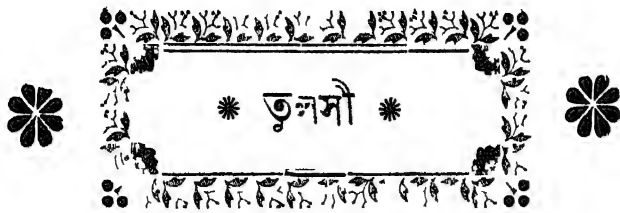 তুলসী